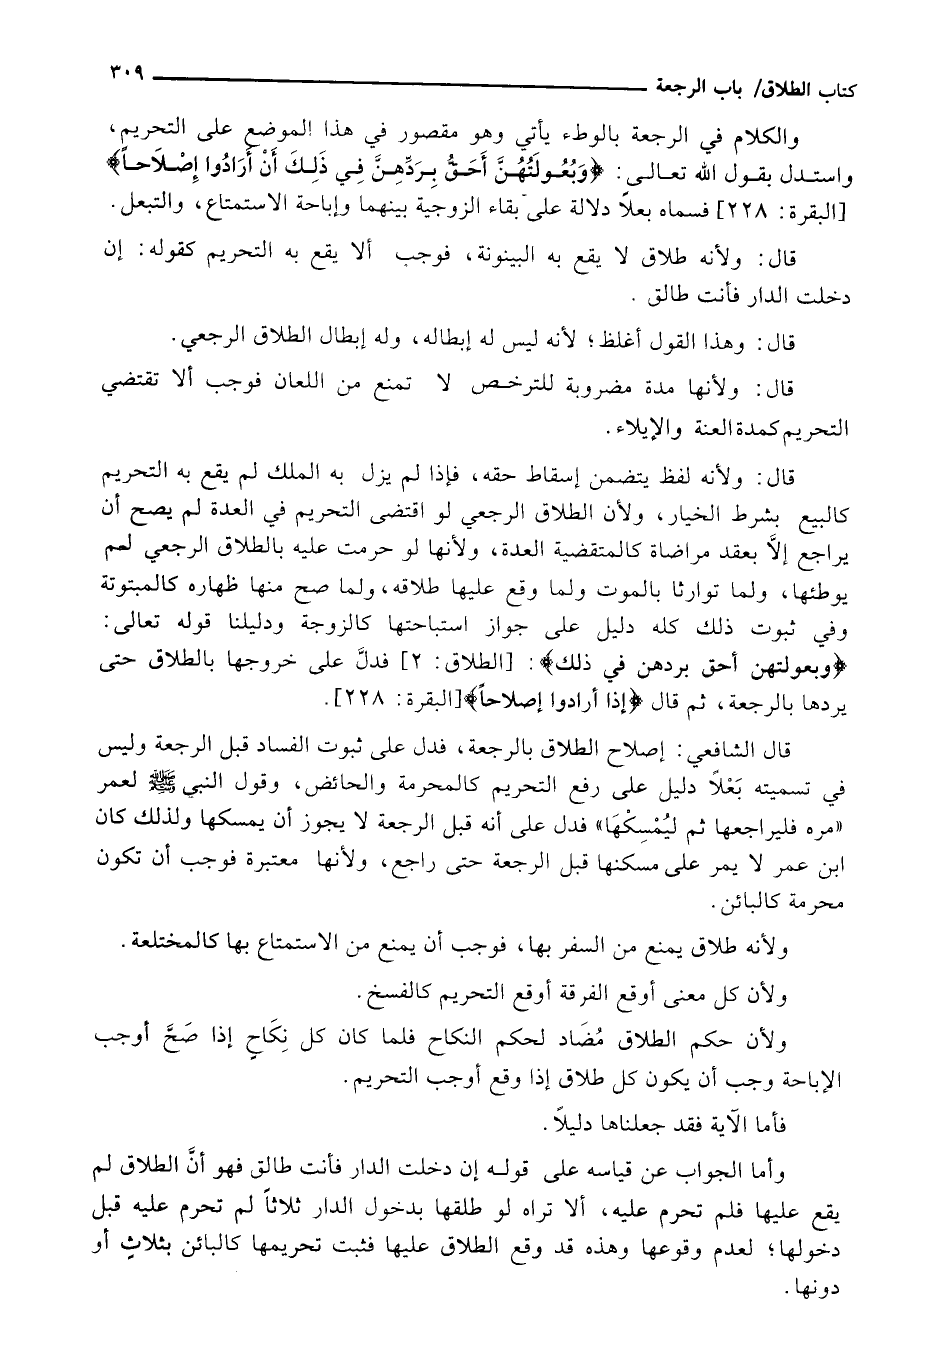 كتاب الطلاق/ باب الرجعة ٣٠٩
والكلام في الرجعة بالوطء يأتي وهو مقصور في هذا الموضع على التحريم،
واستدل بقول الله تعالى: ﴿وَبُعُولَتُهُنَّ أَحَقُّ بِرَدِّهِنَّ فِي ذَلِكَ أَنْ أَرَادُوا إِصْلَاحاً﴾
[البقرة: ٢٢٨] فسماه بعلاً دلالة على بقاء الزوجية بينهما وإباحة الاستمتاع، والتبعل.
قال: ولأنه طلاق لا يقع به البينونة، فوجب ألا يقع به التحريم كقوله: إن
دخلت الدار فأنت طالق .
قال: وهذا القول أغلظ؛ لأنه ليس له إبطاله، وله إبطال الطلاق الرجعي.
قال: ولأنها مدة مضروبة للترخص لا تمنع من اللعان فوجب ألا تقتضي
التحريم كمدة العنة والإيلاء.
قال: ولأنه لفظ يتضمن إسقاط حقه، فإذا لم يزل به الملك لم يقع به التحريم
كالبيع بشرط الخيار، ولأن الطلاق الرجعي لو اقتضى التحريم في العدة لم يصح أن
يراجع إلاَّ بعقد مراضاة كالمتقضية العدة، ولأنها لو حرمت عليه بالطلاق الرجعي لعم
يوطئها، ولما توارثا بالموت ولما وقع عليها طلاقه، ولما صح منها ظهاره كالمبتوتة
وفي ثبوت ذلك كله دليل على جواز استباحتها كالزوجة ودليلنا قوله تعالى:
﴿وبعولتهن أحق بردهن في ذلك﴾: [الطلاق: ٢] فدلَّ على خروجها بالطلاق حتى
يردها بالرجعة، ثم قال ﴿إذا أرادوا إصلاحاً﴾[البقرة: ٢٢٨].
قال الشافعي: إصلاح الطلاق بالرجعة، فدل على ثبوت الفساد قبل الرجعة وليس
في تسميته بَعْلاً دليل على رفع التحريم كالمحرمة والحائض، وقول النبي ﷺ لعمر
«مره فليراجعها ثم ليُمْسِكْهَا» فدل على أنه قبل الرجعة لا يجوز أن يمسكها ولذلك كان
ابن عمر لا يمر على مسكنها قبل الرجعة حتى راجع، ولأنها معتبرة فوجب أن تكون
محرمة كالبائن.
ولأنه طلاق يمنع من السفر بها، فوجب أن يمنع من الاستمتاع بها كالمختلعة.
ولأن كل معنى أوقع الفرقة أوقع التحريم كالفسخ.
ولأن حكم الطلاق مُضَاد لحكم النكاح فلما كان كل نِكَاحٍ إذا صَحَّ أوجب
الإباحة وجب أن يكون كل طلاق إذا وقع أوجب التحريم.
فأما الآية فقد جعلناها دليلاً.
وأما الجواب عن قياسه على قوله إن دخلت الدار فأنت طالق فهو أنَّ الطلاق لم
يقع عليها فلم تحرم عليه، ألا تراه لو طلقها بدخول الدار ثلاثاً لم تحرم عليه قبل
دخولها؛ لعدم وقوعها وهذه قد وقع الطلاق عليها فثبت تحريمها كالبائن بثلاثٍ أو
دونها.